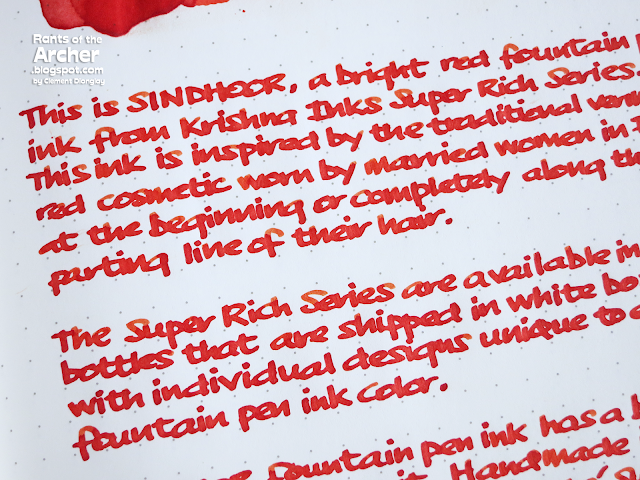 Rants of the
Archer
.blogspot.com
by Clement Dionglay
This is SINDHOOR, a bright red fountain
ink from Krishna Inks Super Rich Series.
This ink is inspired by the traditional
red cosmetic worn by married women in
at the beginning or completely along the
parting line of their hair.
The Super Rich Series are available in
bottles that are shipped in white
with individual designs unique to
fountain pen ink color.
fountain pen ink has a
Handmade